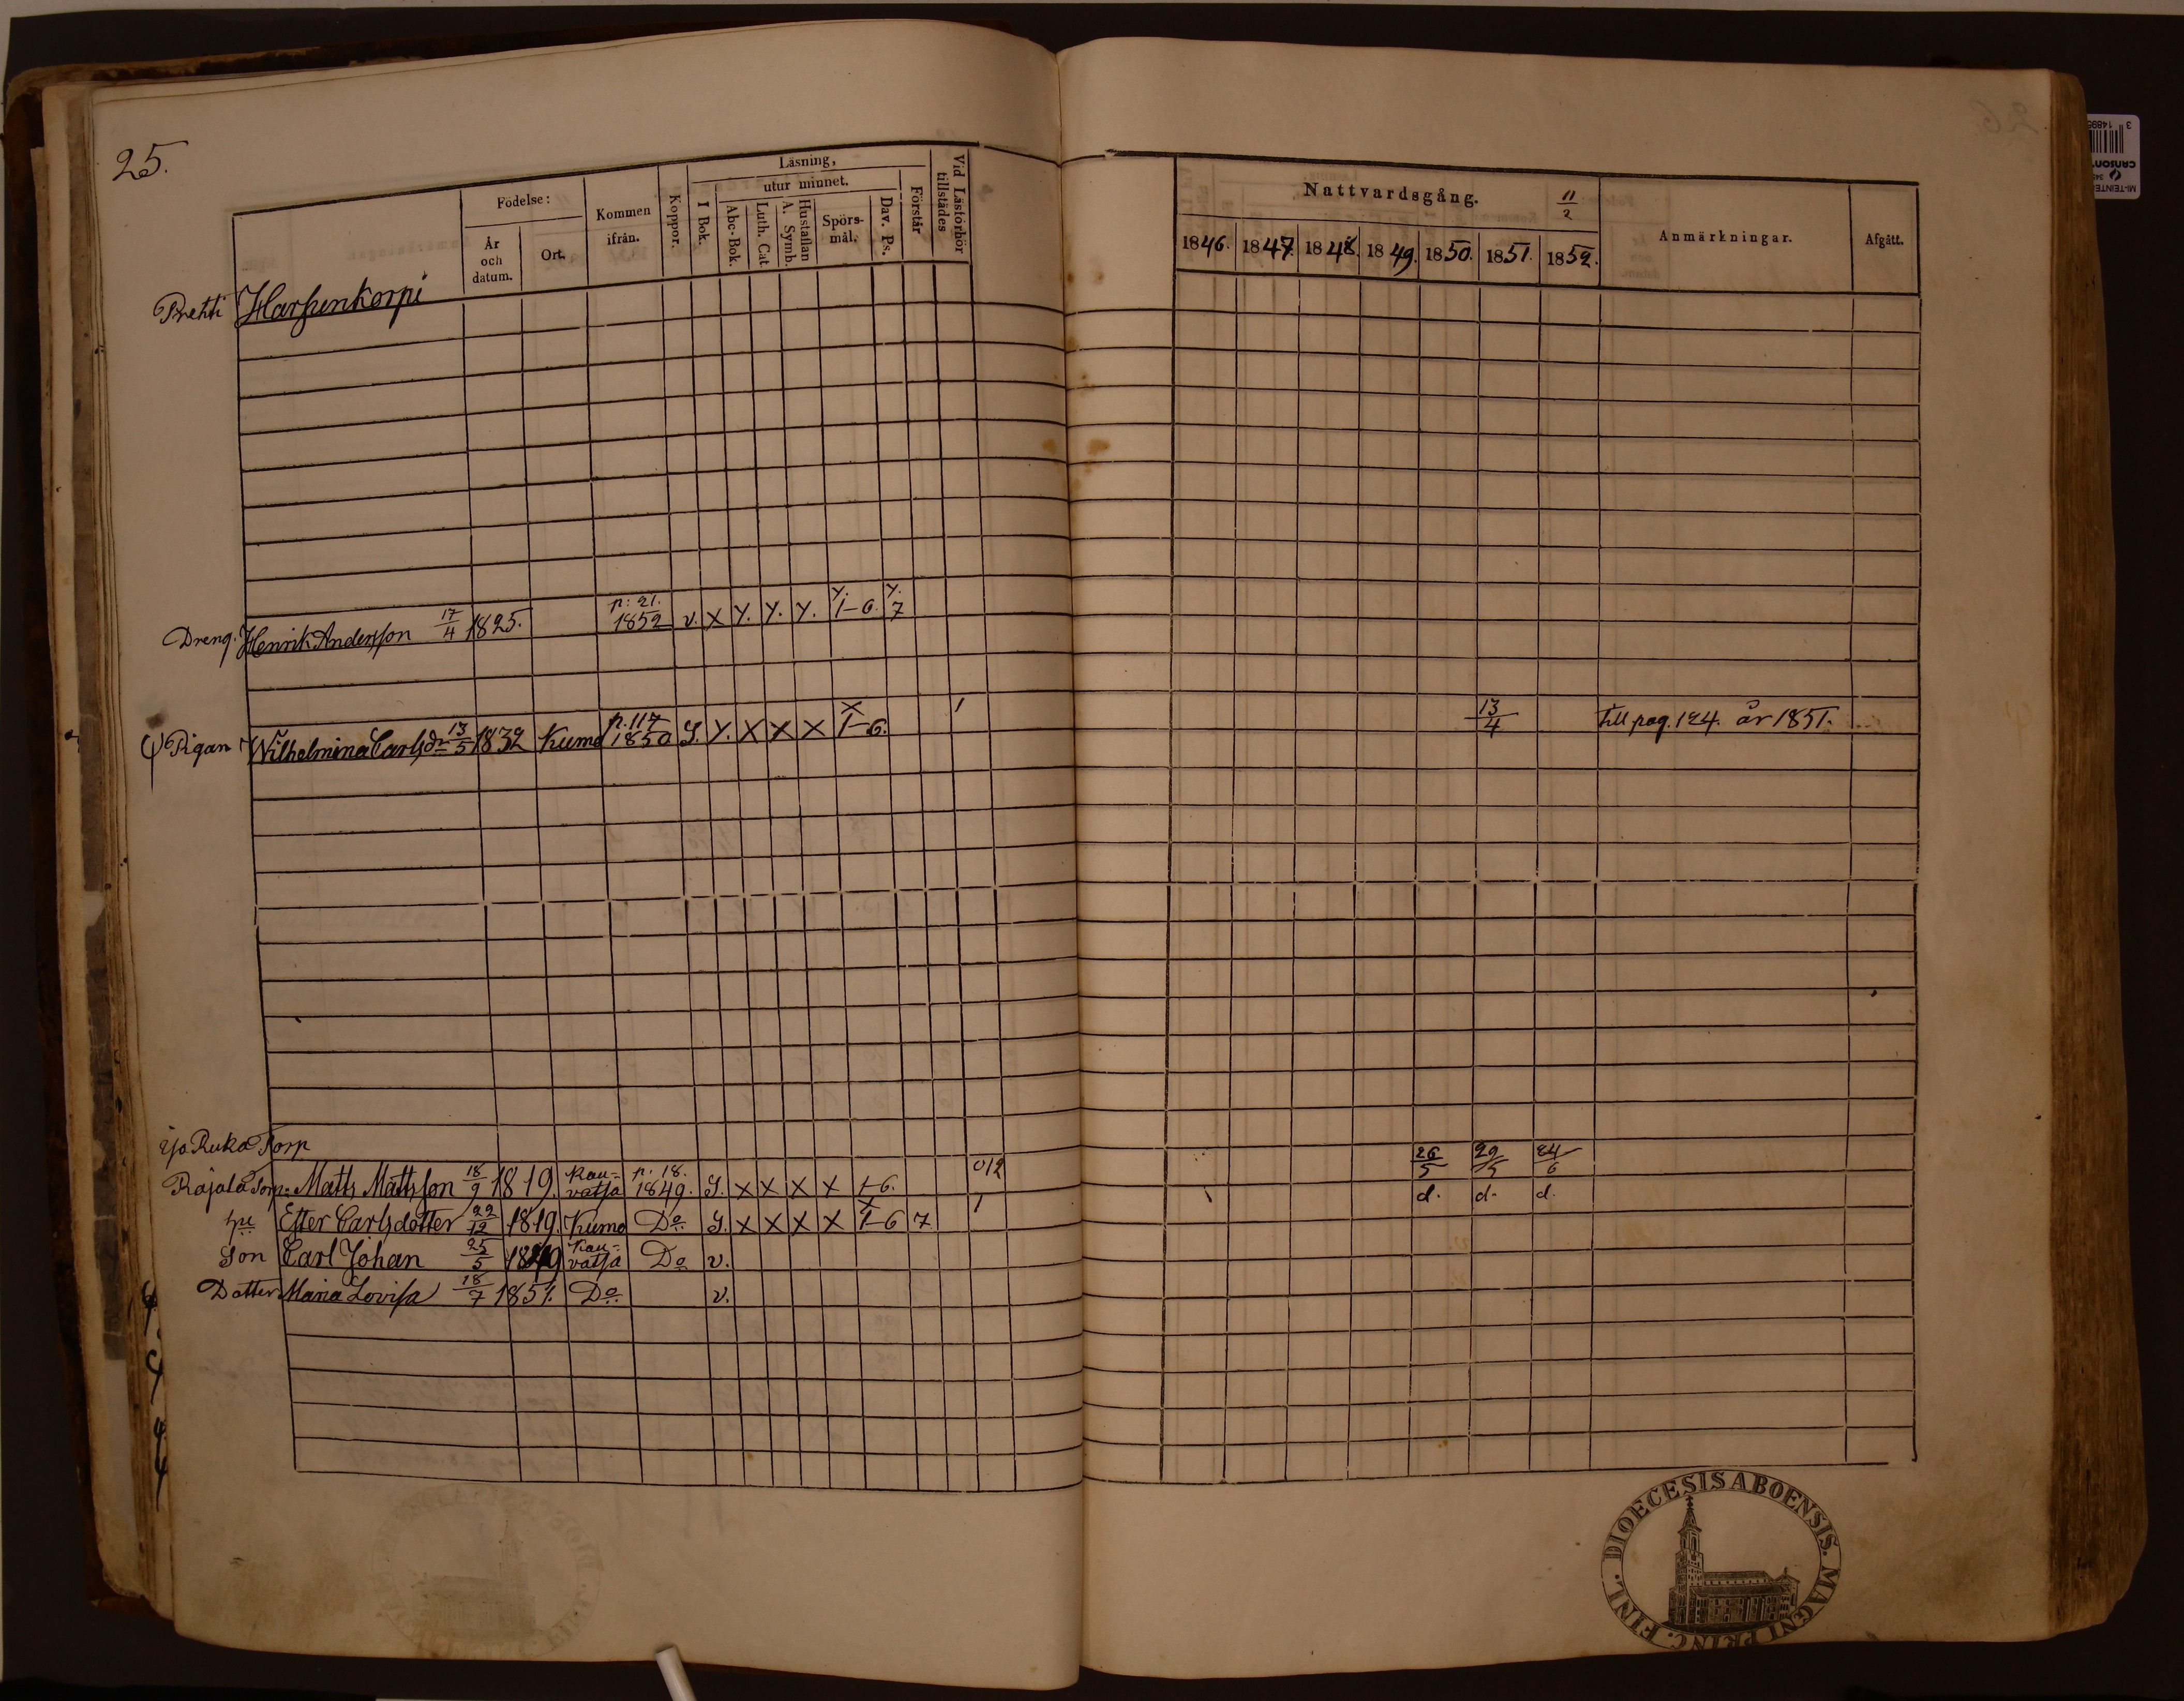 25.
Födelse:
År och datum.
Ort.
Kommen ifrån.
Koppor.
Läsning,
I Bok.
utur minnet.
Abc-Bok.
Luth. Cat.
Hustaflan A. Symb.
Spörsmål.
Dav. Ps.
Förstår
Vid Läsförhör tillstädes
Nattvardsgång. 11/2
1846. 1847. 1848. 1849. 1850. 1851. 1852.
Anmärkningar.
Afgått.
Prehti Harjunkorpi
Dreng. Henrik Andersson 17/4 1825. p: 21. 1852 v. X Y. Y. Y. Y. 1-6. Y. 7
Pigan Wilhelmina Carlsdr 13/5 1832 Kumo p. 117 1850 Y. X X X X 1-6. 1 13/4 Till pag. 124. år 1851.
Ruka Torp
Rajala Torp: Matts Mattsson 18/9 1819. Kauvatsa p: 18. 1849. X X X X 1-6. 26/5 29/5 24/6
Ester Carlsdotter 22/12 1819. Kumo Do X X X X X 1-6 7 1 d. d. d.
Son Carl Johan 25/5 1849 Kauvatsa Do v.
Dotter Maria Lovisa 18/7 1851. Do v.
DIOECESIS ABOENSIS. MAGNI PRINC. FINL.